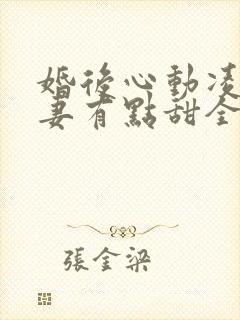 婚後心動凌
妻有點甜全
張金梁